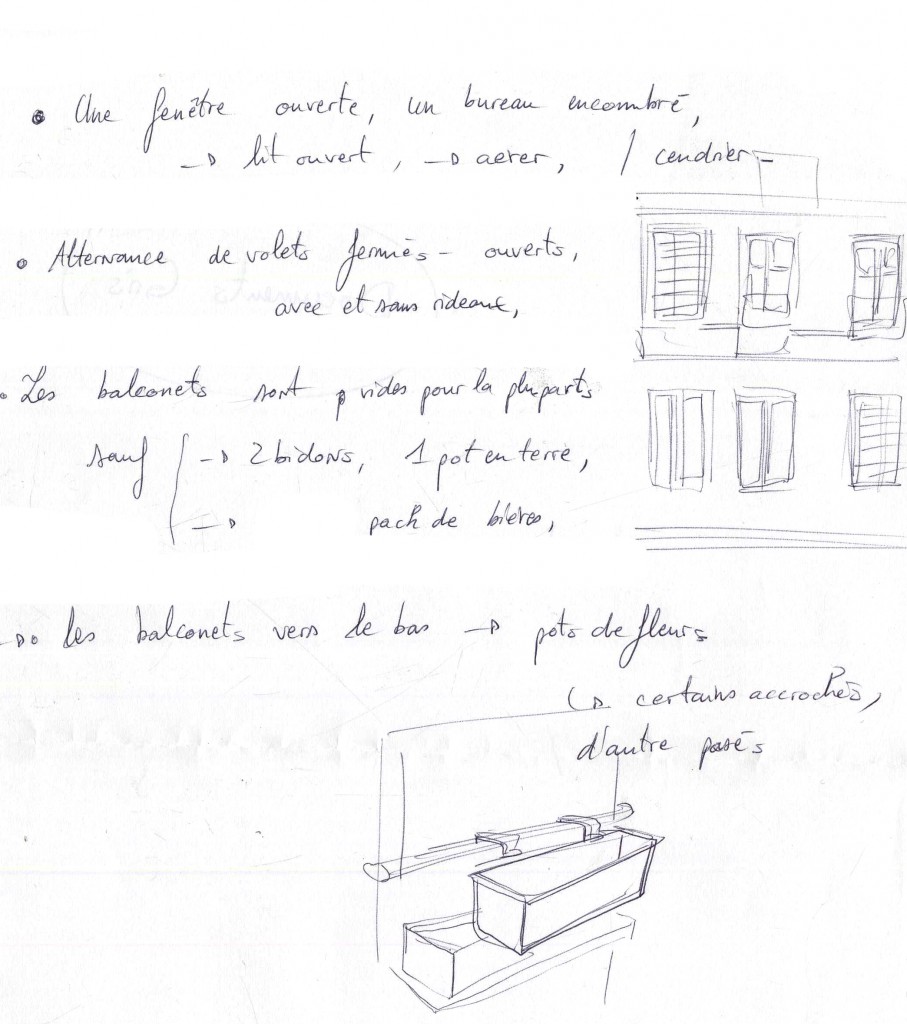 • Une fenêtre ouverte, un bureau encombré,
→ lit ouvert, → aerer, / cendrier -
• Alternance de volets fermés - ouverts,
avec et sans rideaux,
• Les balconets sont vides pour la pluparts
sauf { → 2 bidons, 1 pot en terre,
→ pack de bières,
→• les balconets vers le bas → pots de fleurs
↳ certains accrochés,
d'autre posés